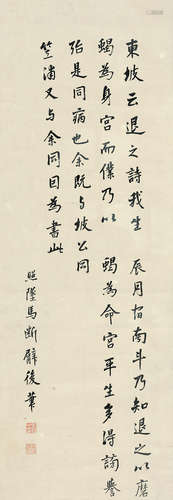 東坡云退之詩我生 辰月宿南斗乃知退之以磨
蝎為身宮而僕乃以 蝎為命宮平生多得謗譽
殆是同病也余既与坡公同
竺浦又与余同因為書此
照墮馬斷臂後筆